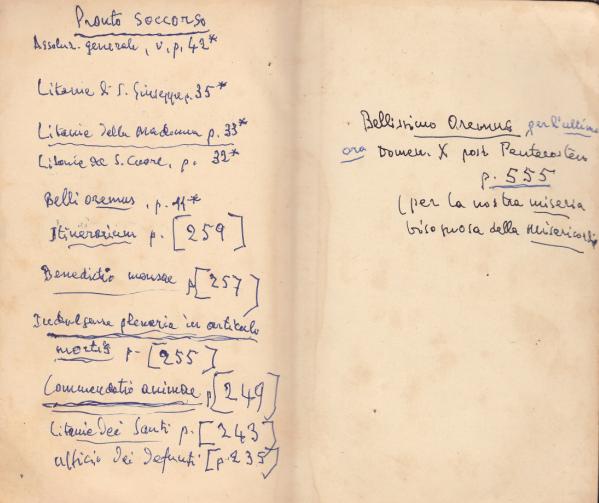 Pronto Soccorso
Assoluz. generale, v. p. 42*
Litanie di S. Giuseppe p. 35*
Litanie della Madonna p. 33*
Litanie del S. Cuore, p. 32*
Belli oremus, p. 11*
Itinerarium p. [259]
Benedictio mensae p. [257]
Indulgenza plenaria in articulo
mortis p. [255]
Commendatio animae p. [249]
Litanie dei Santi p. [243]
Ufficio dei defunti [p. 235]
Bellissimo Oremus per l'ultima
ora Domen. X post Pentecosten
p. 555
(per la nostra miseria
bisognosa della misericordia